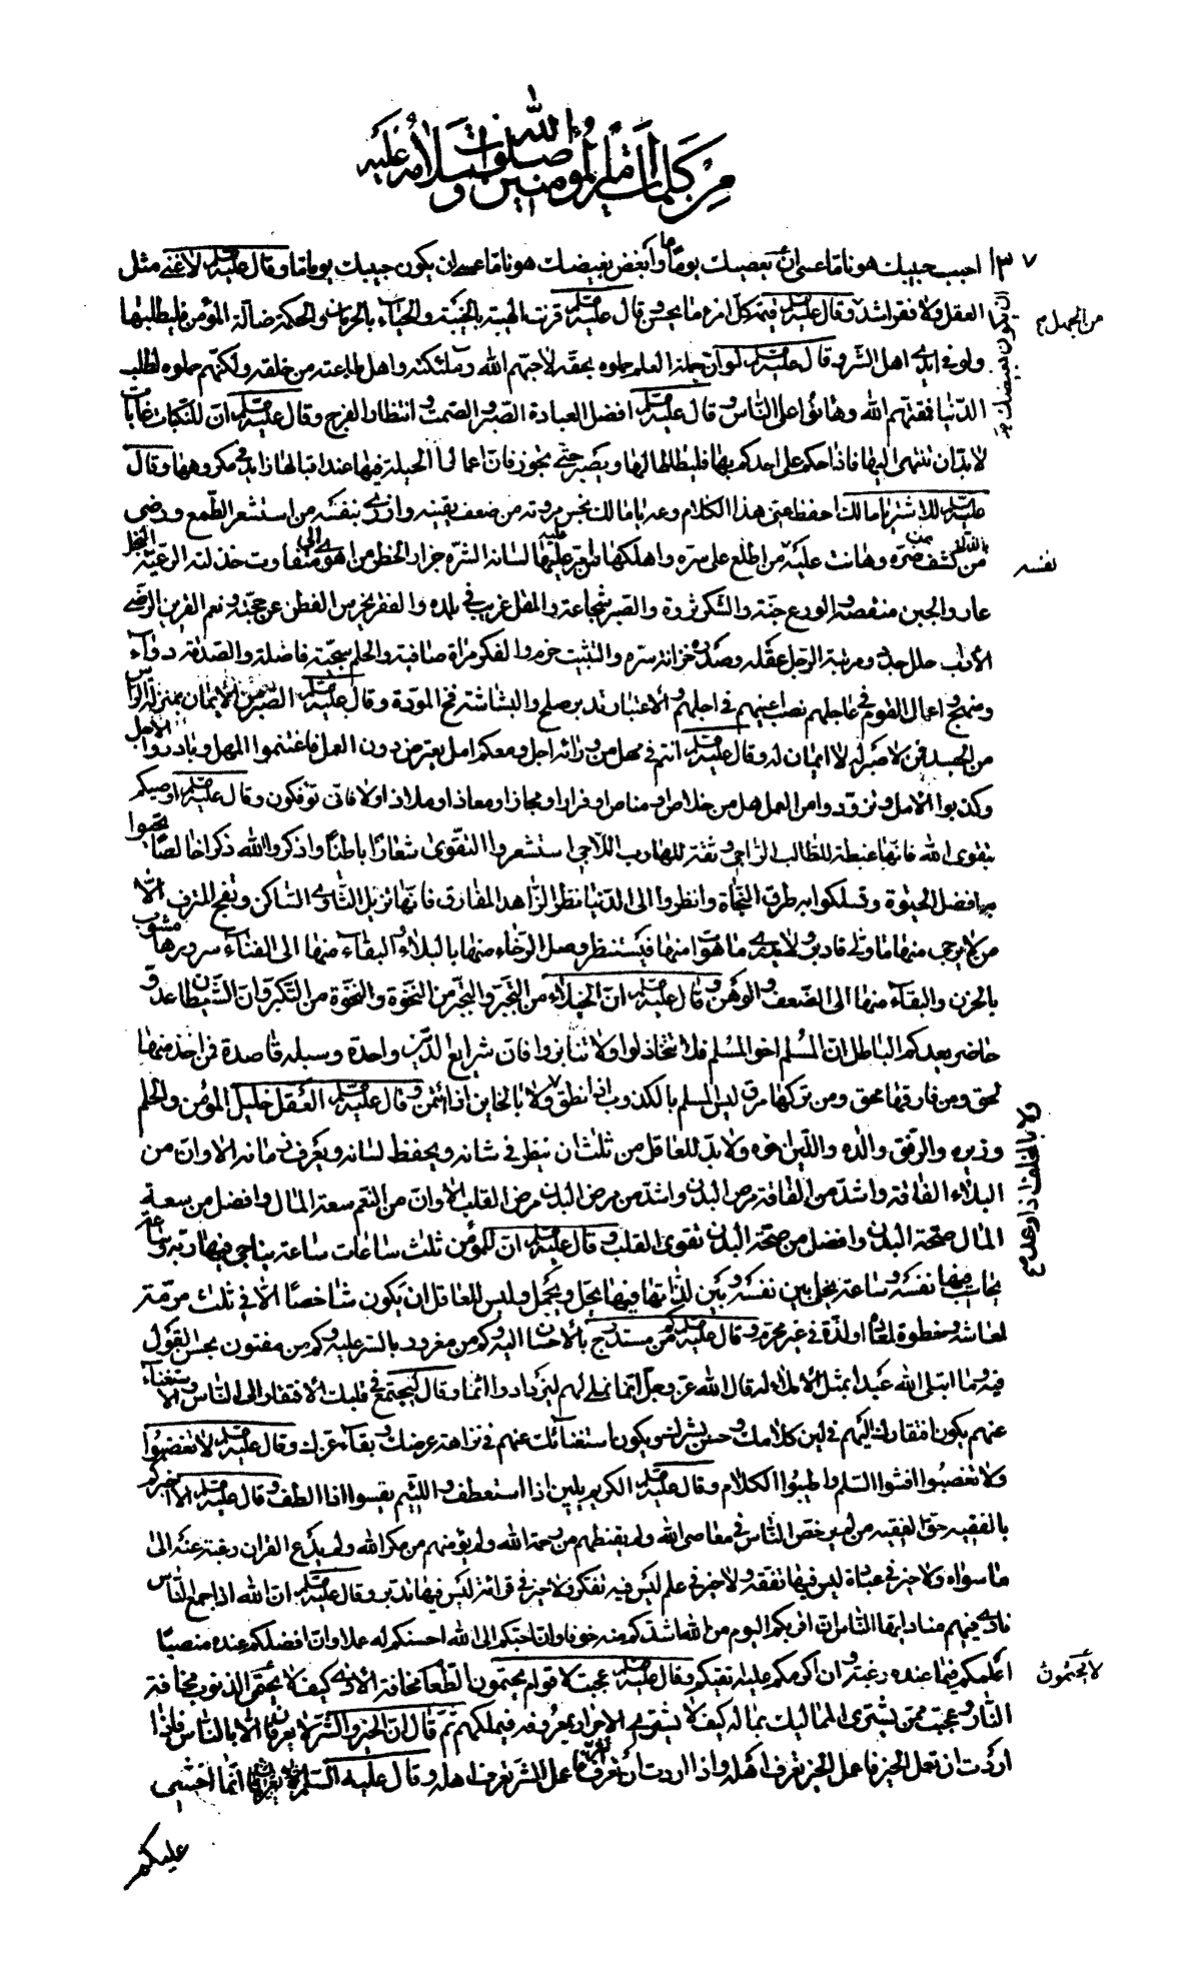 من كلمات أمير المؤمنين صلوات الله وسلامه عليه
١٣٧ احبب حبيبك هونا ما عسى أن يعصيك يوما ما وأبغض بغيضك هونا ما عسى ان يكون حبيبك يوما ما وقال عليه السلم لا غنى مثل
ان يكون بغيضك
العقل ولا فقر اشد وقال عليه السلم قيمة كل امرء ما يحسن قال عليه السلم قرنت الهيبة بالخيبة والحياء بالحرمان والحكمة ضالة المؤمن فليطلبها
من الجهل
ولو في ايدى اهل الشر وقال عليه السلم لو ان حملة العلم حملوه بحقه لاحبهم الله وملئكته واهل طاعته من خلقه ولكنهم حملوه لطلب
الدنيا فمقتهم الله وهانوا على الناس وقال عليه السلم افضل العبادة الصبر والصمت وانتظار الفرج وقال عليه السلم ان للنكبات غايات
لا بد ان تنتهى اليها فاذا حكم على احدكم بها فليطاطا لها ويصبر حتى يجوز فان اعمال الحيلة فيها عند اقبالها زايد في مكروهها وقال
عليه السلم للاشتر يا مالك احفظ عنى هذا الكلام وعه يا مالك بخس مروته من ضعف يقينه وازرى بنفسه من استشعر الطمع ورضى
بالذل من كشف ضره وهانت عليه من اطلع على سره واهلكها من امر عليه لسانه الشره جزار الخطر من اهوى الى متفاوت خذلته الرغبة البخل
نفسه
عار والجبن منقصة والورع جنة والشكر ثروة والصبر شجاعة والمقل غريب في بلده والفقر يخرس الفطن عن حجته ونعم القرين الرضى
الأدب حلل جدد ومرتبة الرجل عقله وصدره خزانة سره والتثبت حزم والفكر مراة صافية والحلم سجية فاضلة والصدقة دواء
ومنجح اعمال القوم في عاجلهم نصب اعينهم في اجلهم والاعتبار تدبر صلح والبشاشة فخ المودة وقال عليه السلم الصبر من الايمان بمنزلة الراس
من الجسد فمن لا صبر له لا ايمان له وقال عليه السلم انتم في مهل من ورائه اجل ومعكم امل يعترض دون العمل فاغتنموا المهل وبادروا الاجل
وكذبوا الامل وتزودوا من العمل هل من خلاص او مناص او فرار او مجاز او معاذ او ملاذ اولا فانى توفكون وقال عليه السلم اوصيكم
بتقوى الله فانها غبطة للطالب الراجى وثقة للهارب اللاجى استشعروا التقوى شعارا باطنا واذكروا الله ذكرا خالصا تحيوا
به افضل الحيوة وتسلكوا به طرق النجاة وانظروا الى الدنيا نظر الزاهد المفارق فانها تزيل الثاوى الساكن وتفجع المترف الآمن
لا يرجى منها ما ولى فادبر ولا يدرى ما هو آت منها فيستنظر وصل الرخاء منها بالبلاء والبقاء منها الى الفناء سرورها مشوب
بالحزن والبقاء منها الى الضعف والوهن وقال عليه السلم ان الخيلاء من التجبر والتجبر من النخوة والنخوة من التكبر وان الشيطان عدو
حاضر يعدكم الباطل ان المسلم اخو المسلم فلا تخاذلوا ولا تنابزوا فان شرايع الدين واحدة وسبله قاصدة فمن اخذ منها
لحق ومن فارقها محق ومن تركها مرق ليس المسلم بالكذوب اذا نطق ولا بالخاين اذا ائتمن وقال عليه السلم العقل خليل المؤمن والحلم
ولا بالمخلف اذا وعد
وزيره والرفق والده واللين اخوه ولا بد للعاقل من ثلث ان ينظر في شانه ويحفظ لسانه ويعرف زمانه الا وان من
البلاء الفاقة واشد من الفاقة مرض البدن واشد من مرض البدن مرض القلب الا وان من النعم سعة المال وافضل من سعة
المال صحة البدن وافضل من صحة البدن تقوى القلب وقال عليه السلم ان للمؤمن ثلث ساعات ساعة يناجي فيها ربه وساعة
يحاسب فيها نفسه وساعة يخلى بين نفسه وبين لذاتها فيما يحل ويجمل وليس للعاقل ان يكون شاخصا الا في ثلث مرمة
لمعاشه وخطوة لمعاده او لذة في غير محرم وقال عليه السلم كم من مستدرج بالأحسان اليه وكم من مغرور بالستر عليه وكم من مفتون بحسن القول
فيه وما ابتلى الله عبدا بمثل الاملاء له قال الله عز وجل انما نملى لهم ليزدادوا اثما وقال ليجتمع في قلبك الافتقار الى الناس والاستغناء
عنهم يكون افتقارك اليهم في لين كلامك وحسن بشرك ويكون استغنائك عنهم في نزاهة عرضك وبقاء عزك وقال عليه السلم لا تغضبوا
ولا تغضبوا افشوا السلم واطيبوا الكلام وقال عليه السلم الكريم يلين اذا استعطف واللئيم يقسوا اذا الطف وقال عليه السلم الا اخبركم
بالفقيه حق الفقيه من لم يرخص الناس في معاصى الله ولم يقنطهم من رحمة الله ولم يؤمنهم من مكر الله ولم يدع القران رغبة عنه الى
ما سواه ولا خير في عبادة ليس فيها تفقه ولا خير في علم ليس فيه تفكر ولا خير في قرائة ليس فيها تدبر وقال عليه السلم ان الله اذا جمع الناس
نادى فيهم مناد ايها الناس ان اقربكم اليوم من الله اشدكم منه خوفا وان احبكم الى الله احسنكم له عملا وان افضلكم عنده منصبا
اعملكم فيما عنده رغبة وان اكرمكم عليه اتقيكم وقال عليه السلم عجبت لاقوام يحتمون الطعام مخافة الاذى كيف لا يحتمى الذنوب مخافة
لا يحتمون
النار وعجبت ممن يشترى المماليك بماله كيف لا يشترى الاحرار بمعروفه فيملكهم ثم قال ان الخير والشر لا يعرفان الا بالناس فاذا
اردت ان تعمل الخير فاعمل الخير تعرف اهله واذا اردت ان تعرف الشر فاعمل الشر تعرف اهله وقال عليه السلم انما اخشى
عليكم